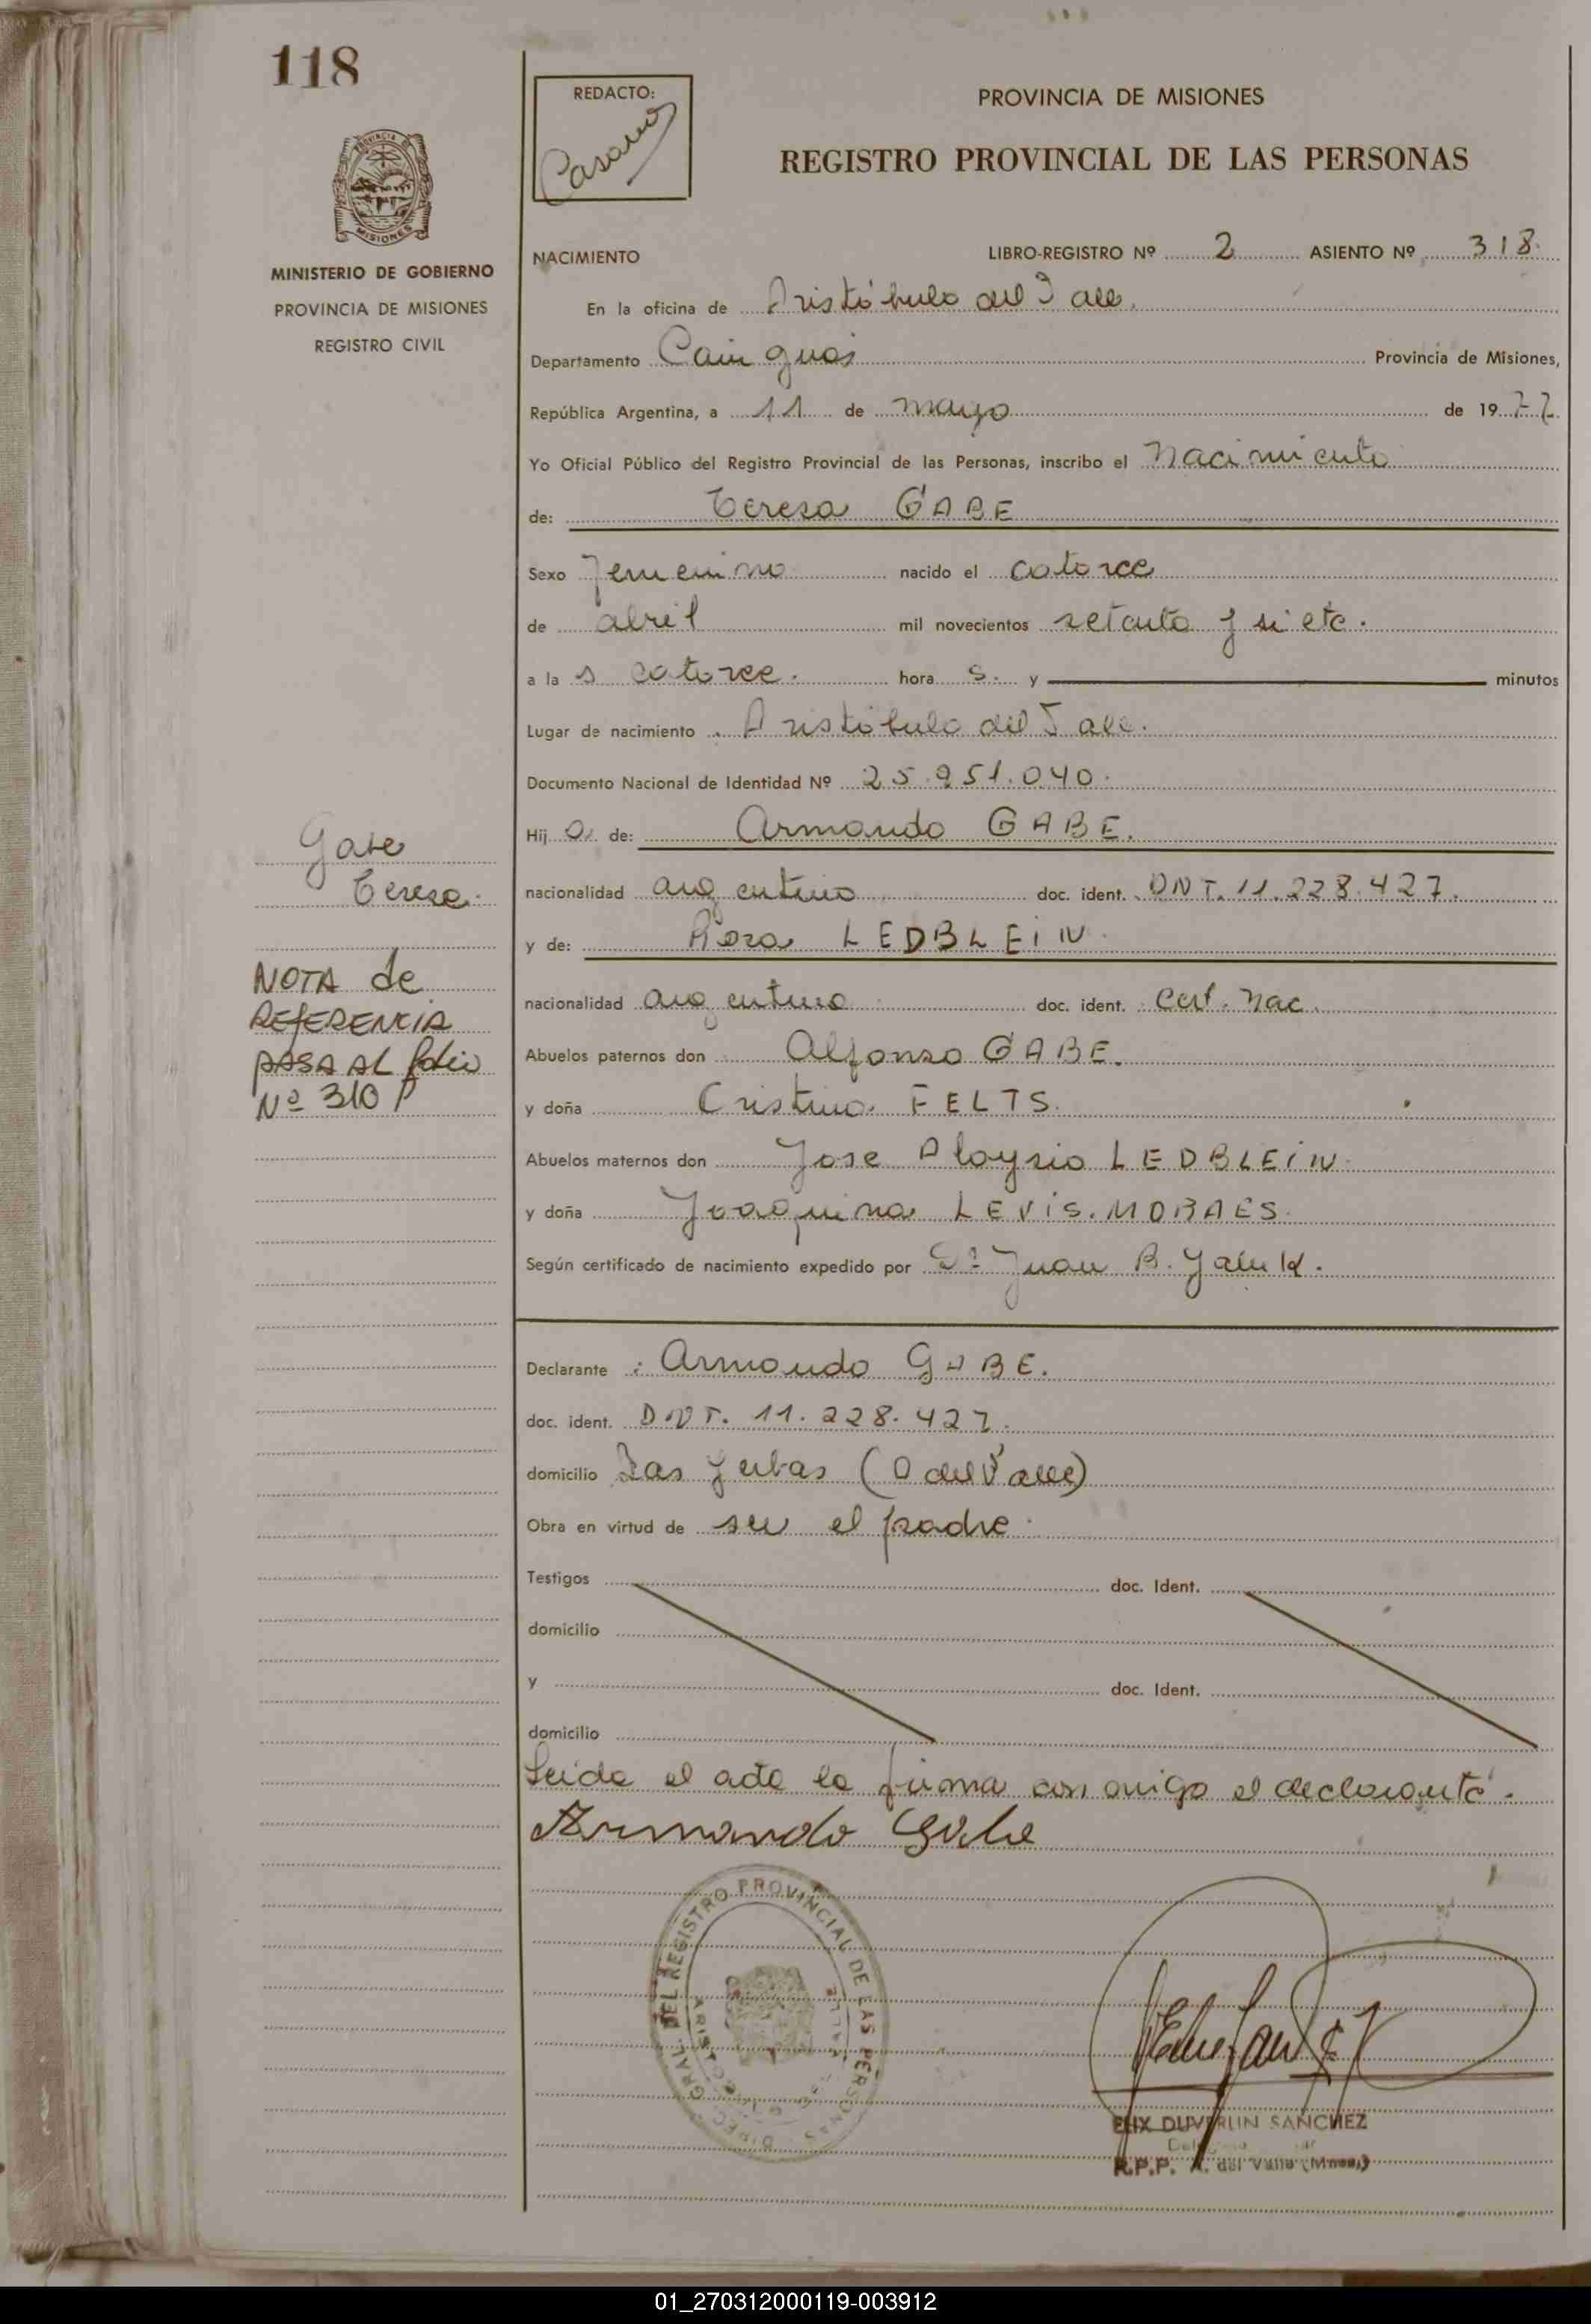 118
REDACTO:
Casano
PROVINCIA DE MISIONES
REGISTRO PROVINCIAL DE LAS PERSONAS
MISIONES
MINISTERIO DE GOBIERNO
PROVINCIA DE MISIONES
REGISTRO CIVIL
NACIMIENTO LIBRO-REGISTRO Nº 2 ASIENTO Nº 318.
En la oficina de Aristóbulo del Valle.
Departamento Cainguás Provincia de Misiones,
República Argentina, a 11 de mayo de 1977
Yo Oficial Público del Registro Provincial de las Personas, inscribo el Nacimiento
de: Teresa GABE
Sexo femenino nacido el catorce
de abril mil novecientos setenta y siete.
a las catorce. horas. y minutos
Lugar de nacimiento Aristóbulo del Valle.
Documento Nacional de Identidad Nº 25.951.040.
Hija de: Armando GABE.
nacionalidad argentino doc. ident. DNT. 11.228.427.
y de: Rosa LEDBLEIN.
nacionalidad argentina doc. ident. Cert. Nac.
Abuelos paternos don Alfonso GABE.
y doña Cristina FELTS.
Abuelos maternos don Jose Aloysio LEDBLEIN.
y doña Joaquina LEVIS. MORAES.
Según certificado de nacimiento expedido por Dr Juan B.
Declarante : Armando GABE.
doc. ident. DNT. 11.228.427.
domicilio Las Yerbas (A del Valle)
Obra en virtud de ser el padre.
Testigos doc. Ident.
domicilio
y doc. Ident.
domicilio
Leida el acta la firma con migo el declarante.
Armando Gabe
Gabe
Teresa.
NOTA de
REFERENCIA
PASA AL folio
Nº 310 P
DIREC. GRAL. DEL REGISTRO PROVINCIAL DE LAS PERSONAS
DUVERLIN SANCHEZ
R.P.P. A. del Valle (Mnes.)
01_270312000119-003912